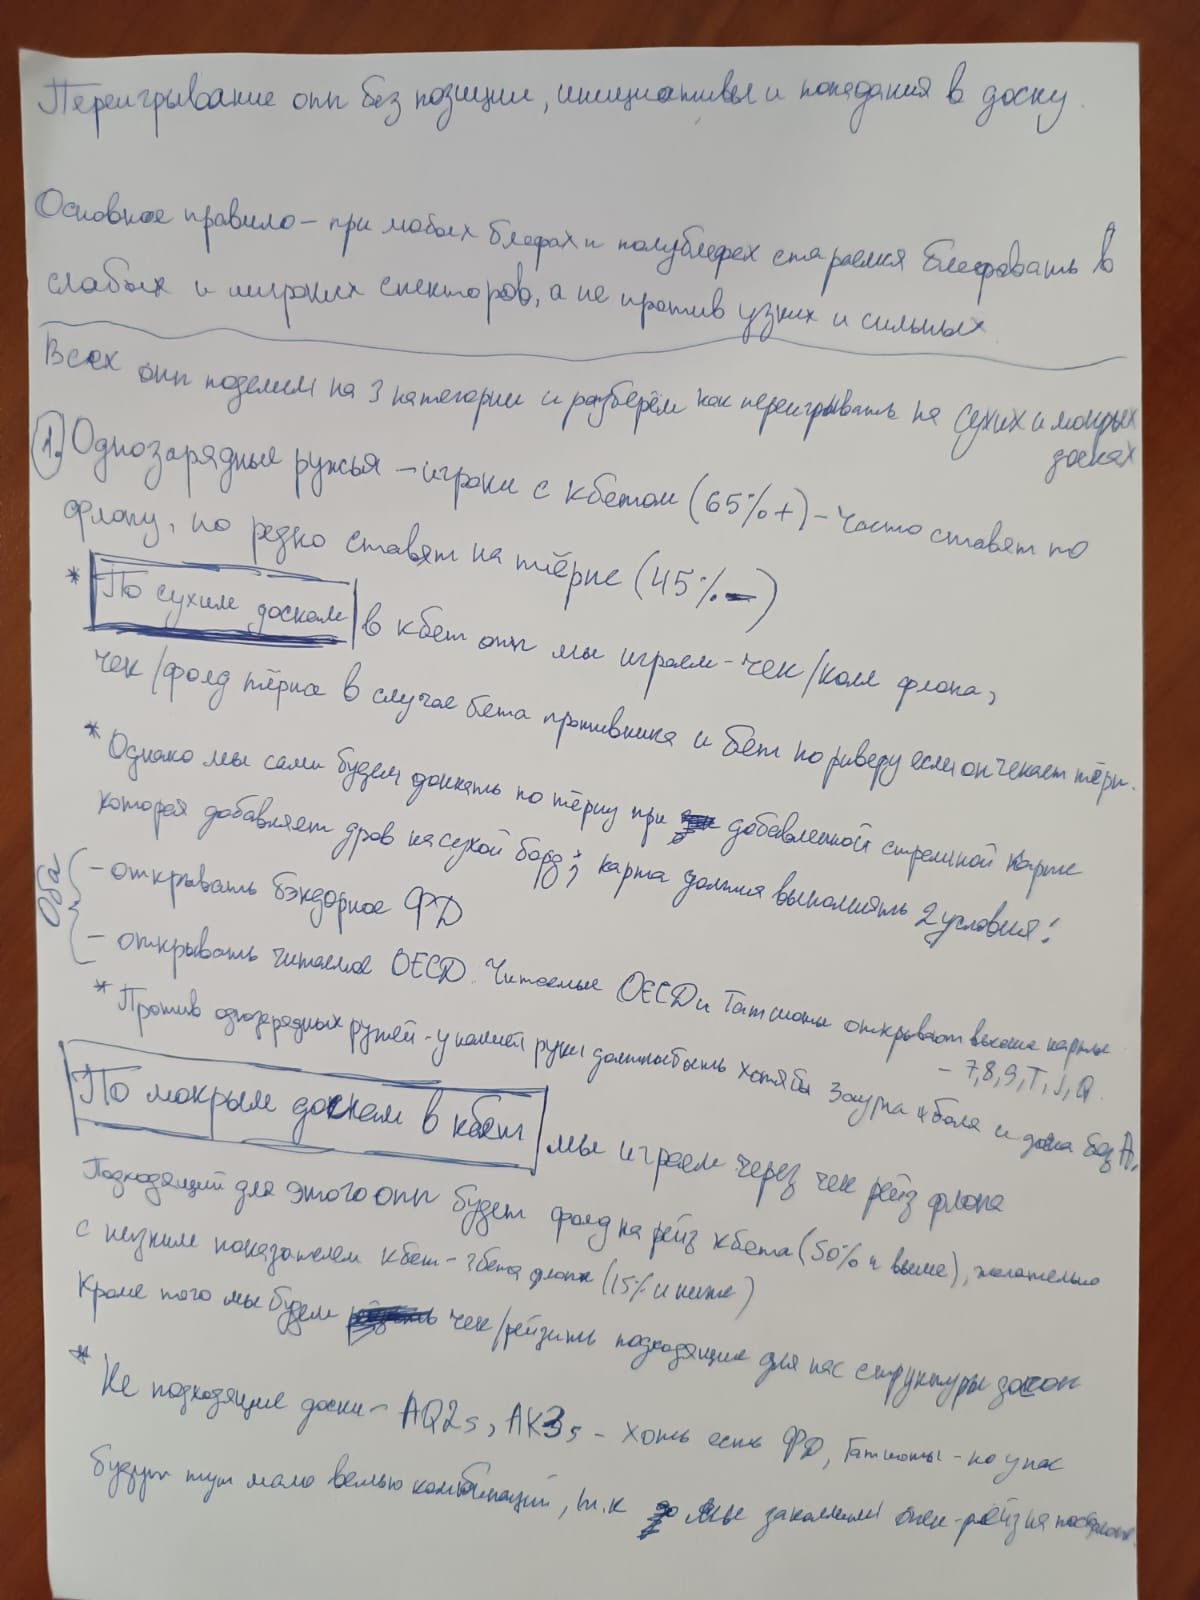 Переигрывание опп без позиции, инициативы и попадания в доску.
Основное правило – при любых блефах и полублефах стараемся блефовать в
слабых и широких спектров, а не против узких и сильных
Всех опп поделим на 3 категории и разберём как переигрывать на сухих и мокрых
досках
1. Однозарядные ружья – игроки с кбетом (65%+) – часто ставят по
флопу, но редко ставят на тёрне (45%-)
* По сухим доскам в кбет опп мы играем – чек/колл флопа,
чек/фолд тёрна в случае бета противника и бет по риверу если он чекает тёрн.
* Однако мы сами будем донкать по тёрну при добавленной стремной карте
которая добавляет дров на сухой борд; карта должна выполнять 2 условия:
Оба
- открывать бэкдорное ФД
- открывать читаемое OESD. Читаемые OESD и Гатшоты открывают высокие карты
- 7,8,9,T,J,Q
* Против однозарядных ружей – у нашей руки должно быть хотя бы 3 аутра и доска без А.
По мокрым доскам в кбет мы играем через чек рейз флопа
Подходящий для этого опп будет фолд на рейз кбета (50% и выше), желательно
с низким показателем кбет – 3бета флопа (15% и ниже)
Кроме того мы будем чек/рейзить подходящие для нас структуры досок
* Не подходящие доски – AQ2s, AK3s – хоть есть ФД, Гатшоты – но у нас
будут тут мало велью комбинаций, т.к мы заколлили опен-рейз на